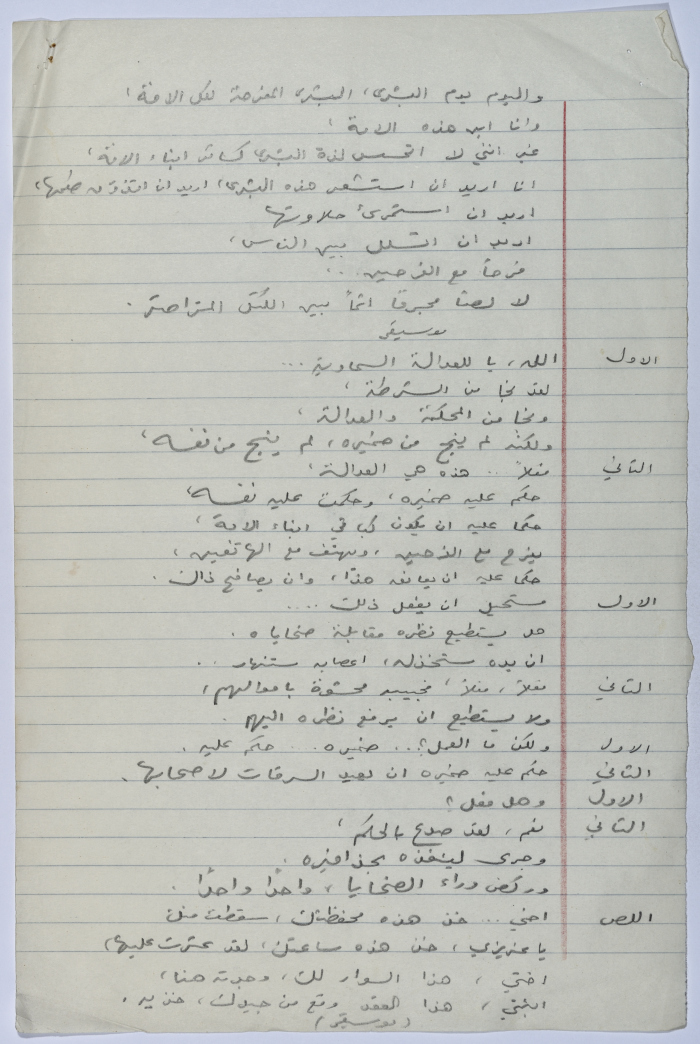 واليوم يوم البشرى، البشرى المفرحة لكل الامة،
وانا ابن هذه الامة،
غير انني لا اتحسس لذة البشرى كسائر ابناء الامة،
انا اريد ان استشعر هذه البشرى، اريد ان اتذوق طعمها،
اريد ان استمرئ حلاوتها
اريد ان اتسلل بين الناس،
فرحاً مع الفرحين...
لا لصاً محترفاً اثماً بين الكتل المتراصة.
موسيقى
الاول الله، يا للعدالة السماوية ...
لقد نجا من الشرطة،
ونجا من المحكمة والعدالة،
ولكنه لم ينج من ضميره، لم ينج من نفسه،
الثاني فعلاً .. هذه هي العدالة،
حكم عليه ضميره، وحكمت عليه نفسه،
حكما عليه ان يكون كباقي ابناء الامة،
يفرح مع الفرحين، ويهتف مع الهاتفين،
حكما عليه ان يعانق هذا، وان يصافح ذاك.
الاول مستحيل ان يفعل ذلك ....
هل يستطيع نظره مقابلة ضحاياه.
ان يده ستخذله، اعصابه ستنهار ..
الثاني فعلاً، فعلاً، فجيبه محشوة باموالهم،
ولا يستطيع ان يرفع نظره اليهم.
الاول ولكن ما العمل؟... ضميره ... حكم عليه.
الثاني حكم عليه ضميره ان يعيد السرقات لاصحابها.
الاول وهل فعل؟
الثاني نعم، لقد صدع بالحكم،
وجرى لينفذه بحذافيره.
وركض وراء الضحايا، واحدًا واحدًا.
اللص اخي... خذ هذه محفظتك، سقطت منك
يا عزيزي، خذ هذه ساعتك، لقد عثرت عليها،
اختي، هذا السوار لك، وجدته هنا،
ابنتي، هذا العقد وقع من جيدك، خذيه.
(موسيقى)